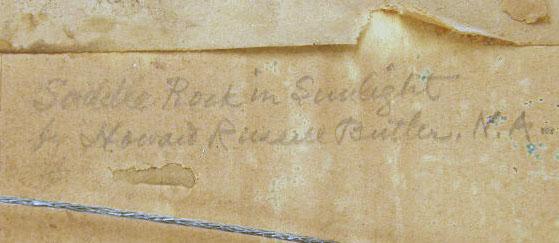 Saddle Rock in Sunlight
by Howard Russell Butler, N.A.